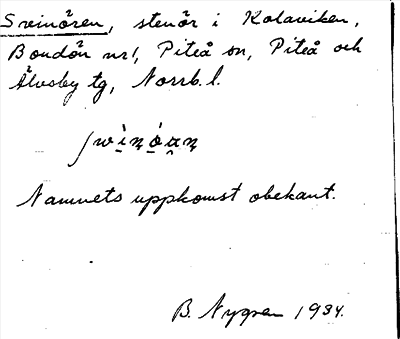 Svinören, stenör i Kolaviken,
Bondön nr 1, Piteå sn, Piteå och
Älvsby tg, Norrb. l.
Namnets uppkomst obekant.
B. Nygren 1934.